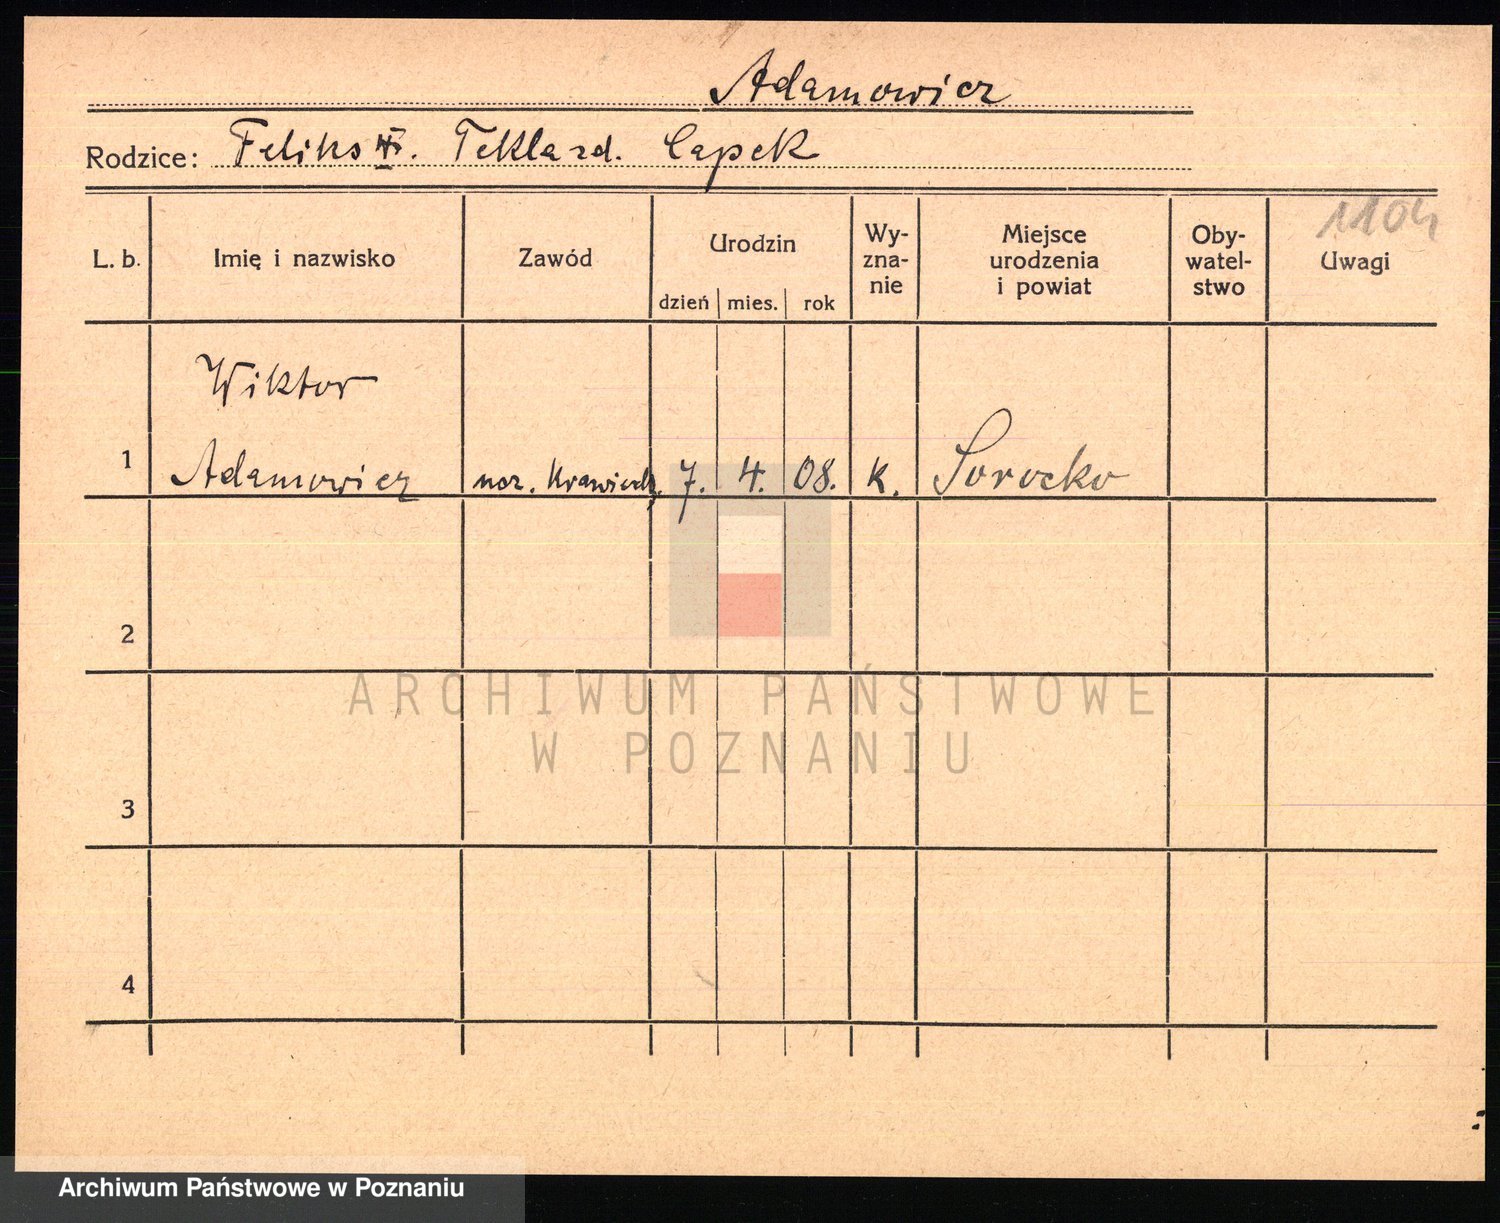 Adamowicz
Rodzice: Feliks i. Tekla zd. Capek
1104
L. b. Imię i nazwisko Zawód Urodzin dzień mies. rok Wy-zna-nie Miejsce urodzenia i powiat Oby-watel-stwo Uwagi
Wiktor
1 Adamowicz 7. 4. 08. k. Sorocko
2
ARCHIWUM PAŃSTWOWE
W POZNANIU
3
4
Archiwum Państwowe w Poznaniu